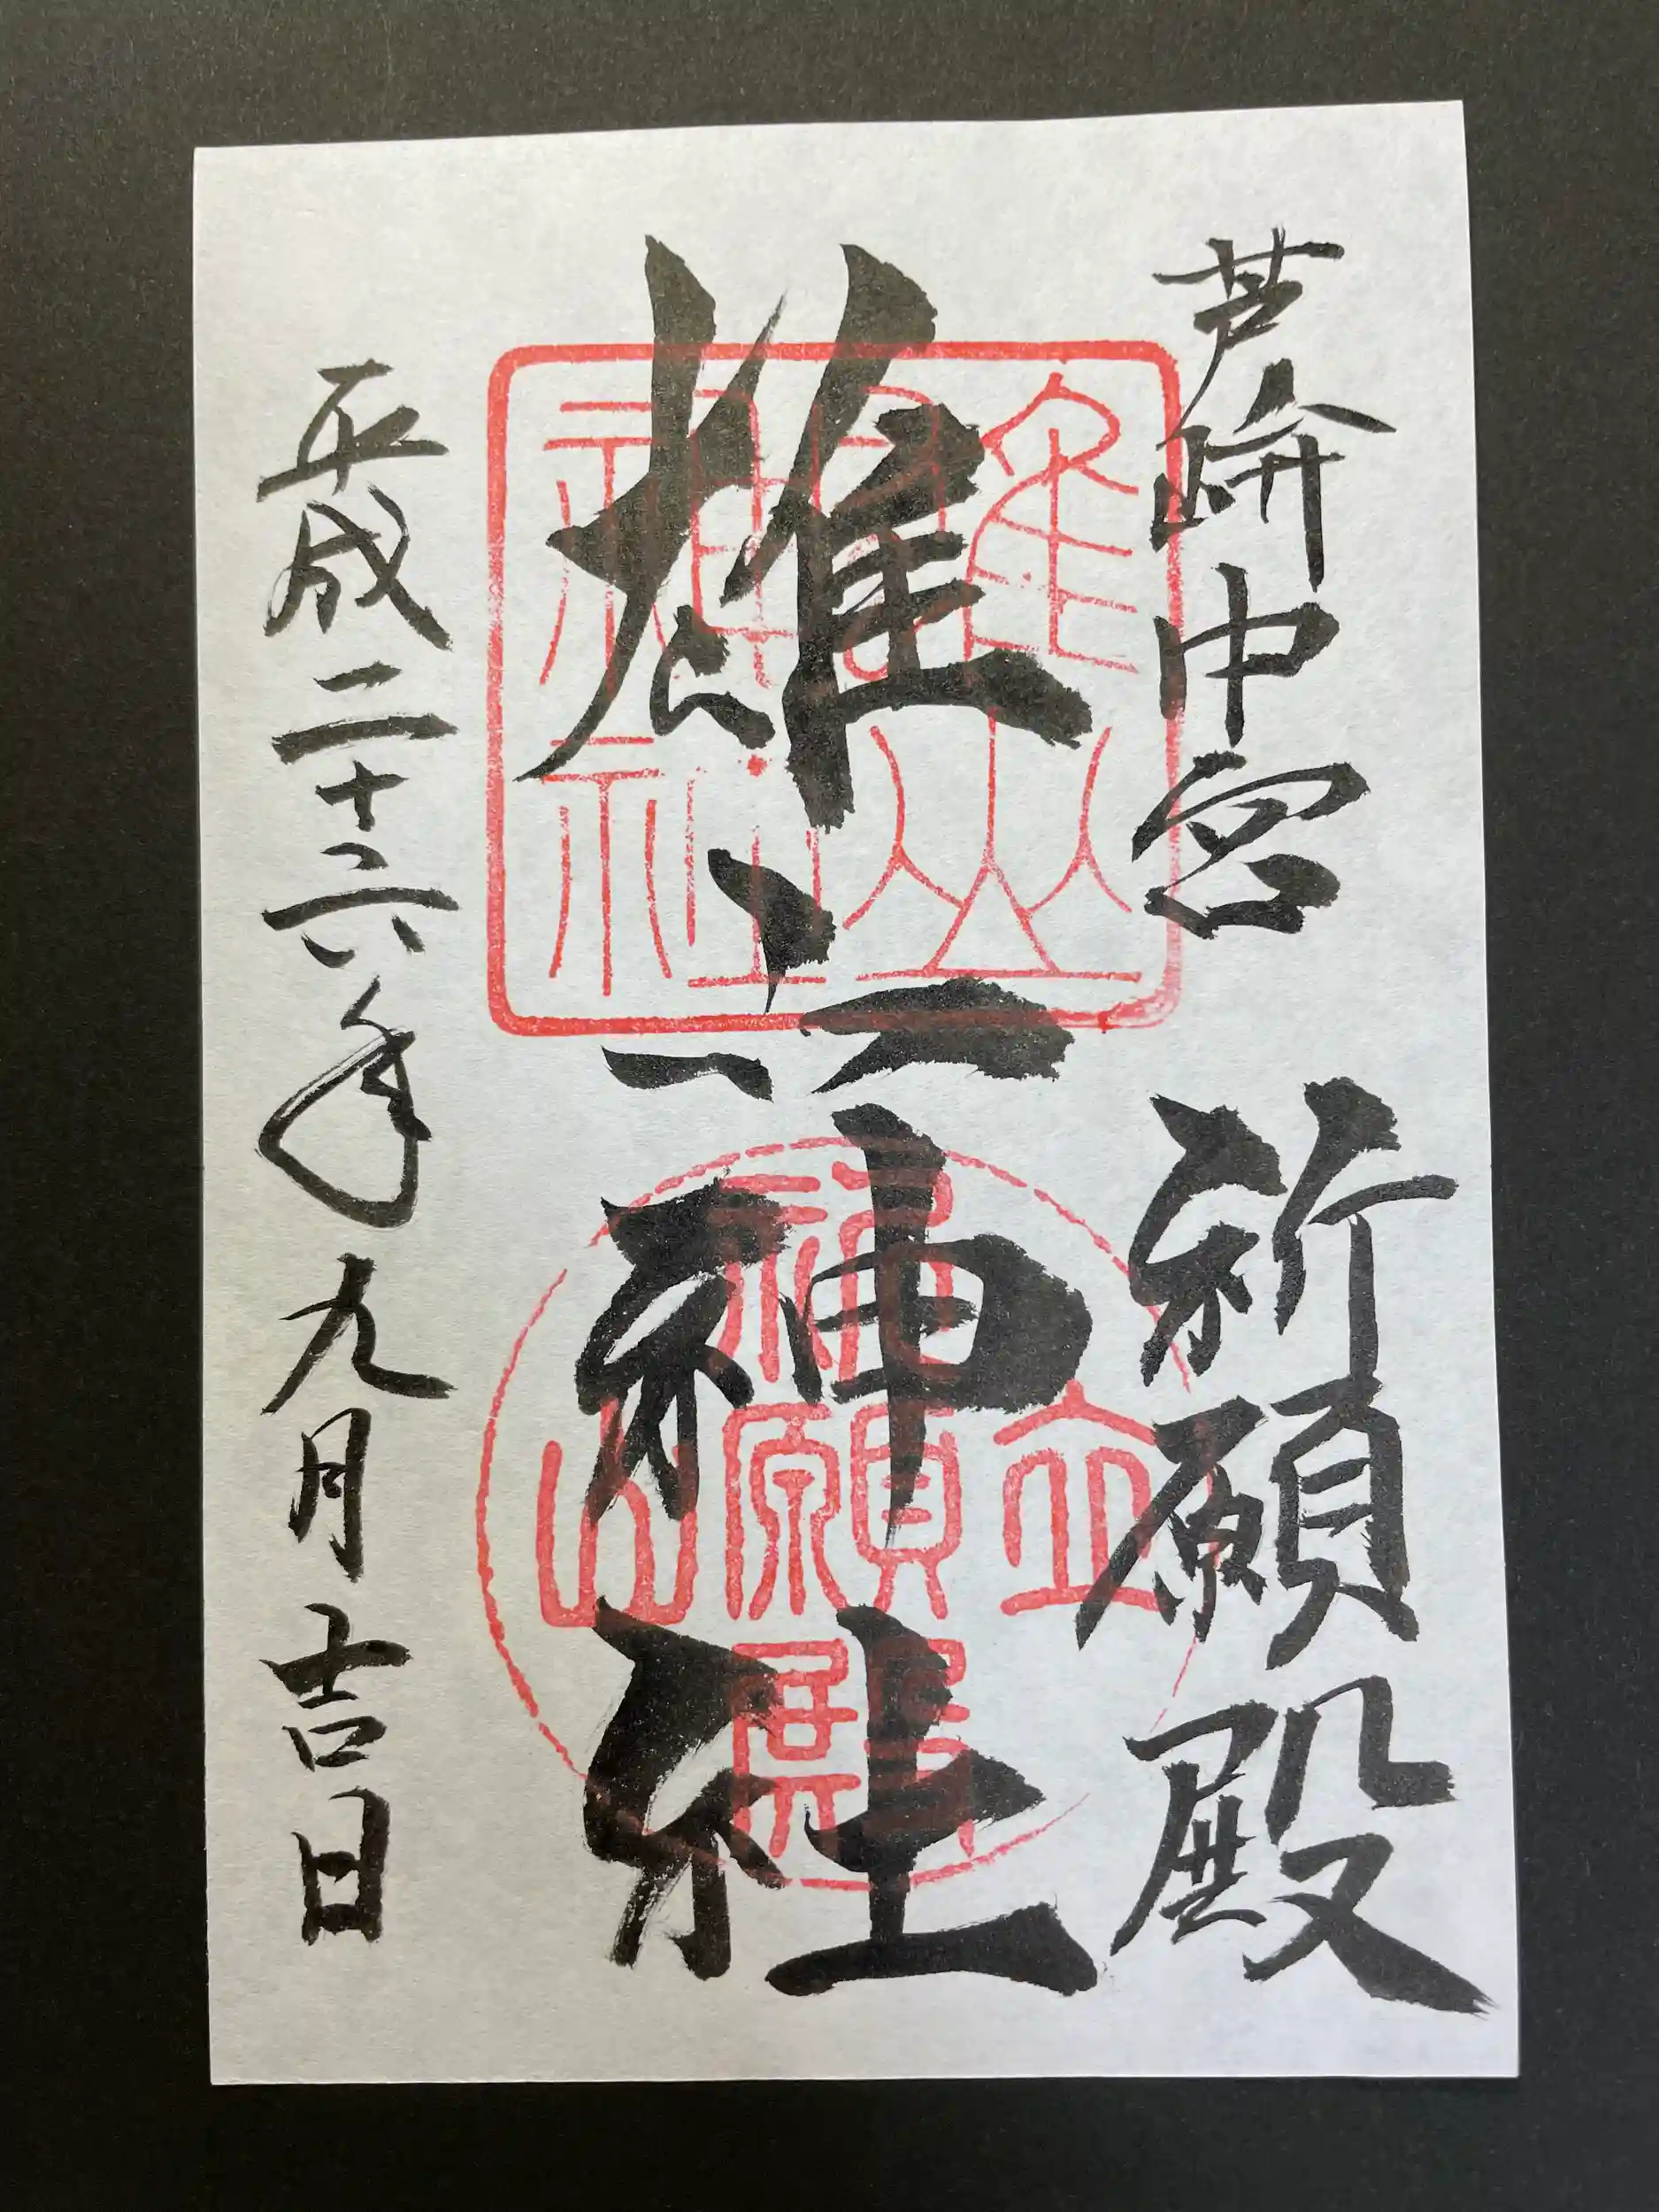 芦峅中宮 祈願殿
雄山神社
平成二十六年九月吉日
雄山
神社
立山
祈願殿